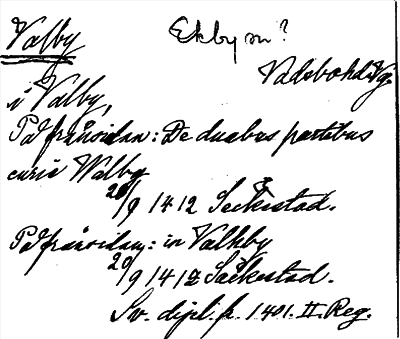 Valby Ekby sn?
Vadsbo hd Vg.
i Valby,
På framsidan: De duabus partibus
curie Walby
20/9 1412 Seekestad.
På framsidan: in Valkby
20/9 1412 Säckestad.
Sv. dipl. fr. 1401. II. Reg.